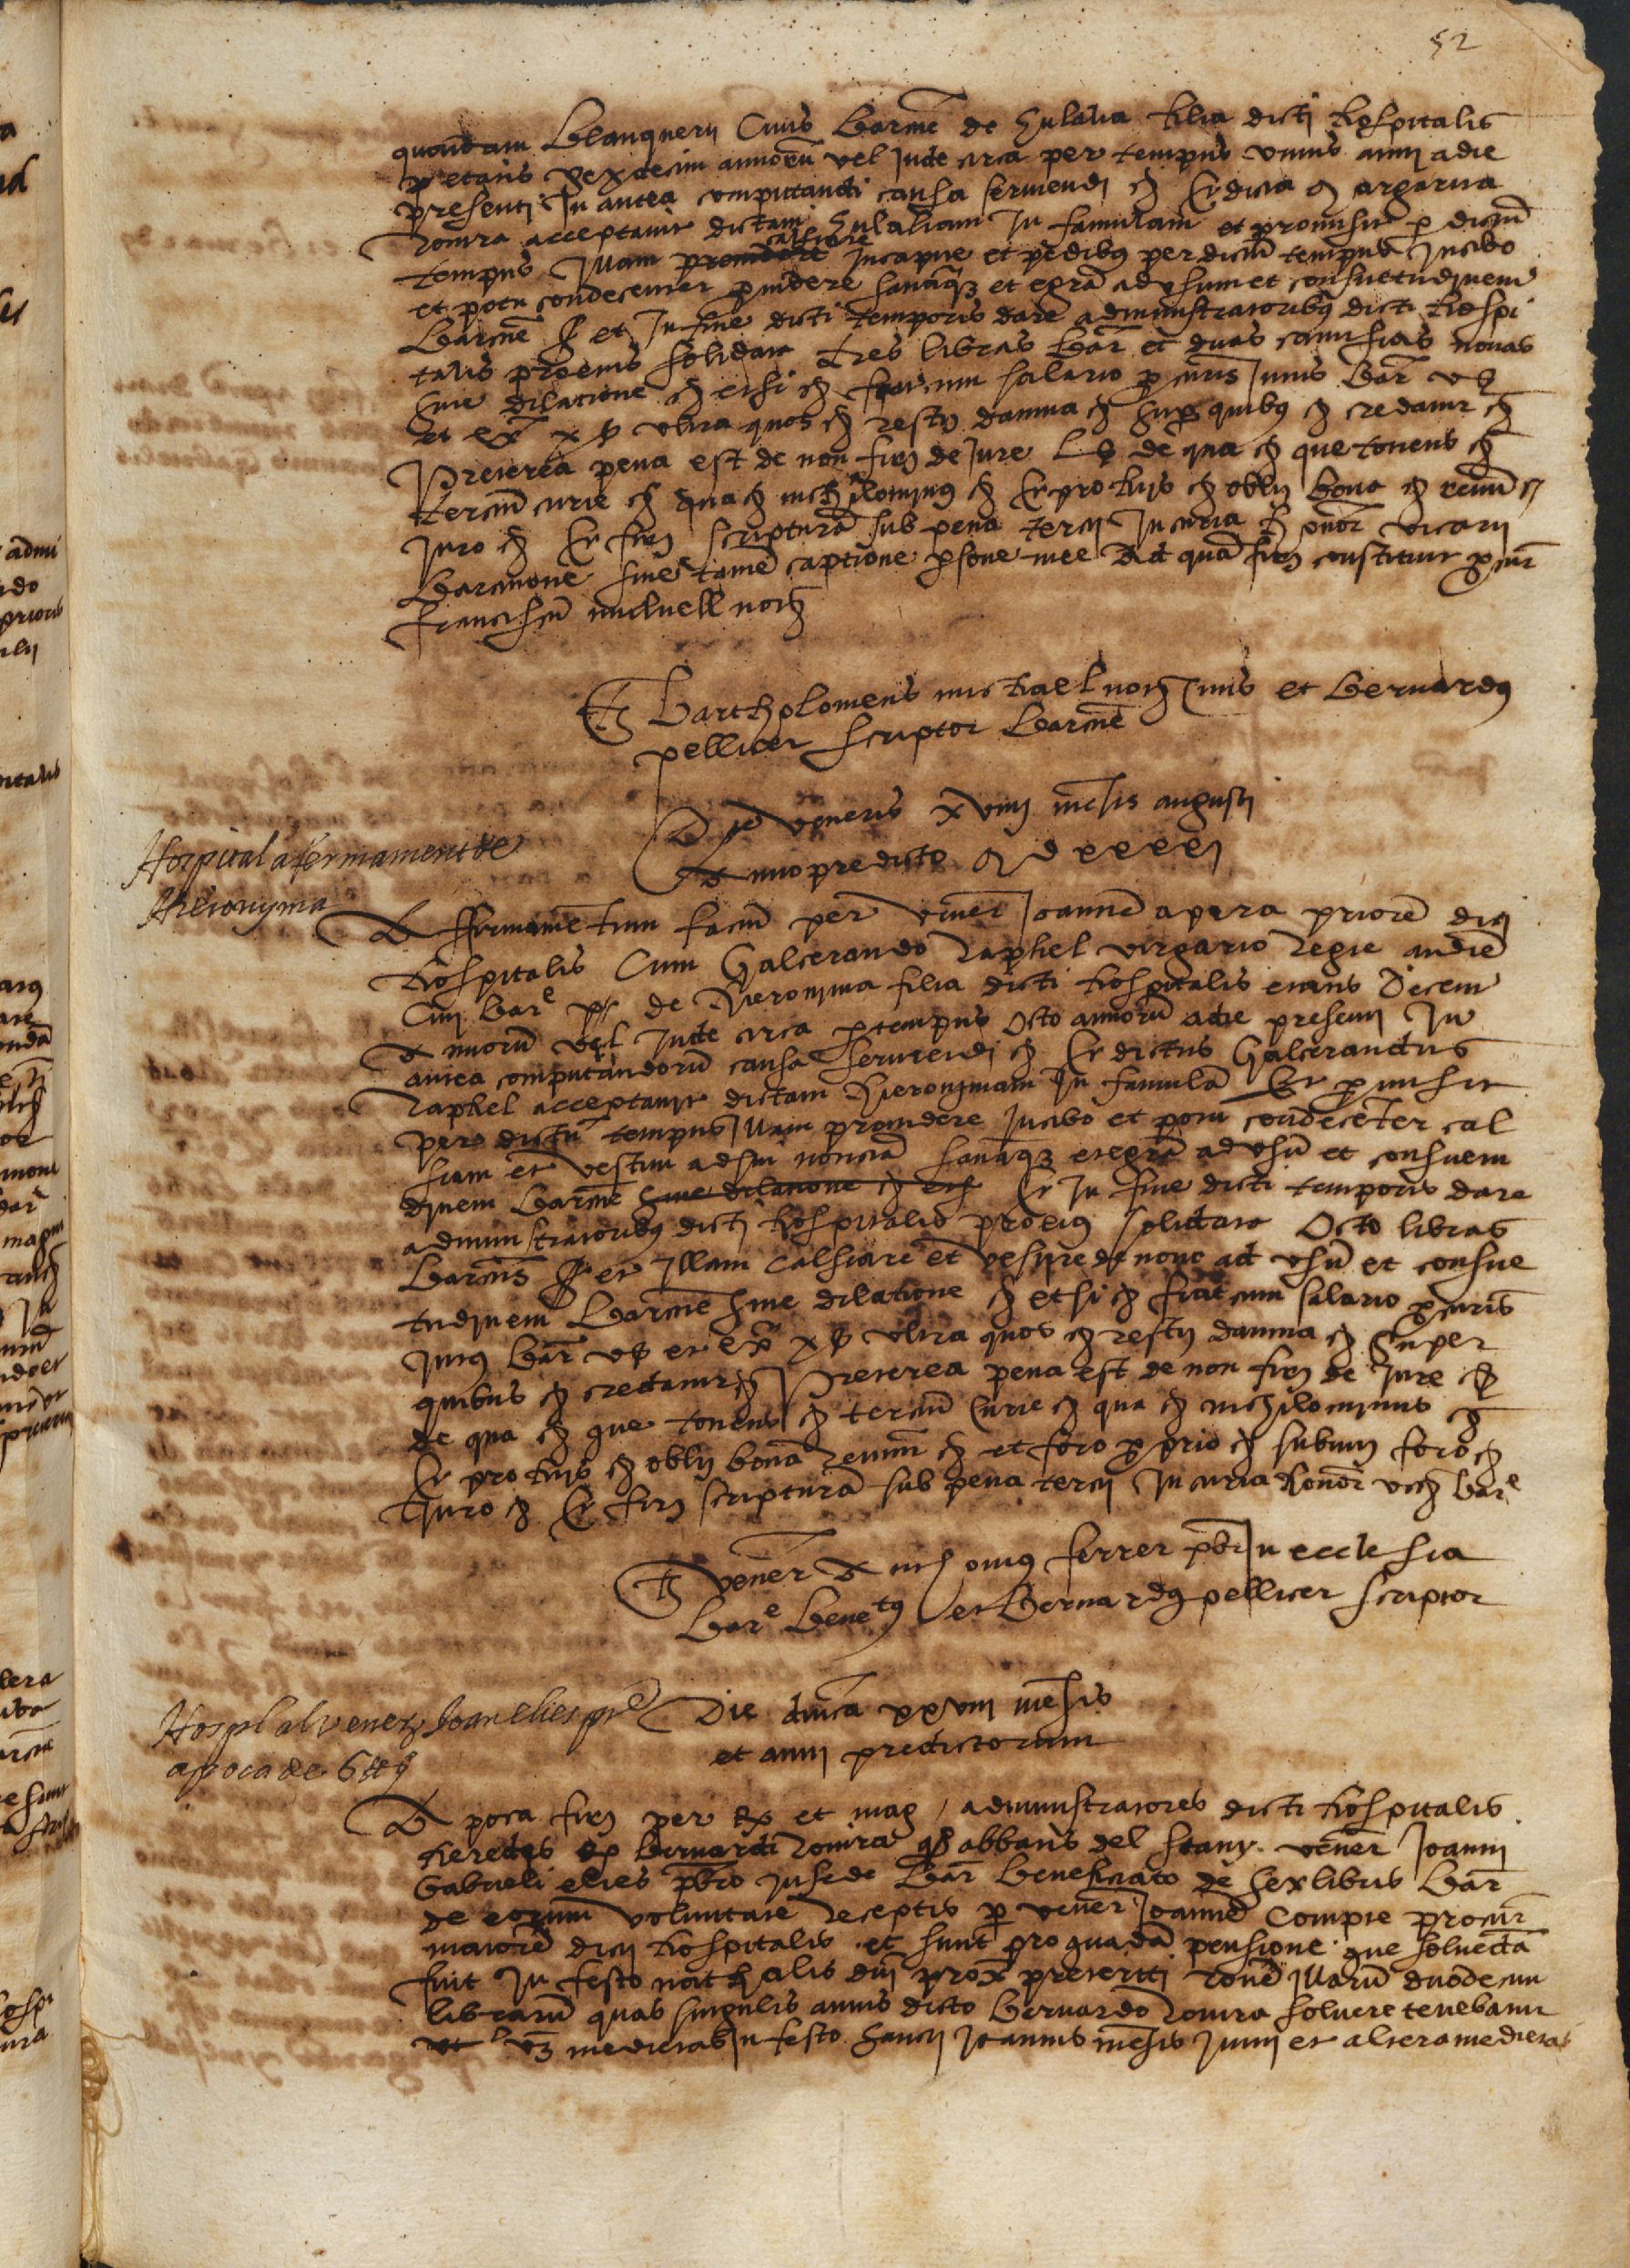 52
quondam Blanquerij Civis Barcine de Eulalia filia dicti hospitalis
etatis sexdecim annorum vel inde circa per tempus unius anni a die
presenti in antea computandi causa serviendi Et dicta Margarita
Rovira acceptavit dictam Eulaliam in famulam et promisit per dictum
tempus illam providere calciare in capite et pedibus per dictum tempus in cibo
et potu condecenter providere sanamque et egram ad usum et consuetudinem
Barcine et in fine dicti temporis dare administratoribus dicti hospi
talis pro eius solidata tres libras Bar et duas camisias novas
sine dilatione etsi fiat cum salario procuris intus Bar v s
et ex x s ultra quos resty damna super quibus credatur
Preterea pena est de non firm de jure L s de qua que tonens
tercium curie qua nichilominus Et pro hijs obli bona renun
juro Et firm scripturam sub pena tercij in curia honor vicarij
Barcinone sine tamen captione persone mee Ad quam firm constituit procur
Franciscum not
Ts Bartholomeus michael not civis et Bernardus
pellicer scriptor Barcine
Die veneris xviiij mensis augusti
Anno predicto M d xxxxj
Hospital afermament de
Hieronyma
Affirmamentum factum per vener Joannem apera priorem dicti
hospitalis Cum Galcerando Raphel virgario Regie audien
Civi Bare de Hieronima filia dicti hospitalis etatis Decem
annorum vel inde circa per tempus Octo annorum a die presenti in
antea computandorum causa serviendi Et dictus Galcerandus
Raphel acceptavit dictam Hieronimam in famulam Et promisit
per dictum tempus illam providere in cibo et potu condecenter cal
siam et vestitu ad sui sanamque et egram ad usum et consuetu
dinem Barcine sine dilatione etsi Et in fine dicti temporis dare
administratoribus dicti hospitalis pro eius solidata Octo libras
Barcinon et illam calsiare et vestire de novo ad usum et consue
tudinem Barcine sine dilatione et si fiat cum salario procuris
intus Bar v s et ex x s ultra quos resty damna super
quibus credatur Preterea pena est de non firm de jure
de qua que tonens tercium Curie qua nichilominus
Et pro hijs obli bona renun et foro proprio submi foro
Juro Et firm scripturam sub pena tercij in curia honor vic Bare
Ts vener Anthonius ferrer pbr in ecclesia
Bare Benetus et Bernardus pellicer scriptor
Hospl al vener Joan elies pre
apoca de 6 ll s
Die dnica xxviij mensis
et anni predictorum
Apoca firm per et mag administratores dicti hospitalis
heredes Bernardi Rovira abbatis del stany vener Joanni
Gabrieli elies pbro in sede Bar beneficiato de sex libris Bar
de eorum voluntate receptis per vener Joannem Compte procur
maiorem dicti hospitalis et sunt pro quadam pensione que solvenda
fuit in festo nathalis dni prox preteriti illarum duodecim
librarum quas singulis annis dicto Bernardo Rovira solvere tenebatur
medietas in festo sancti Joannis mensis Junij et altera medietas